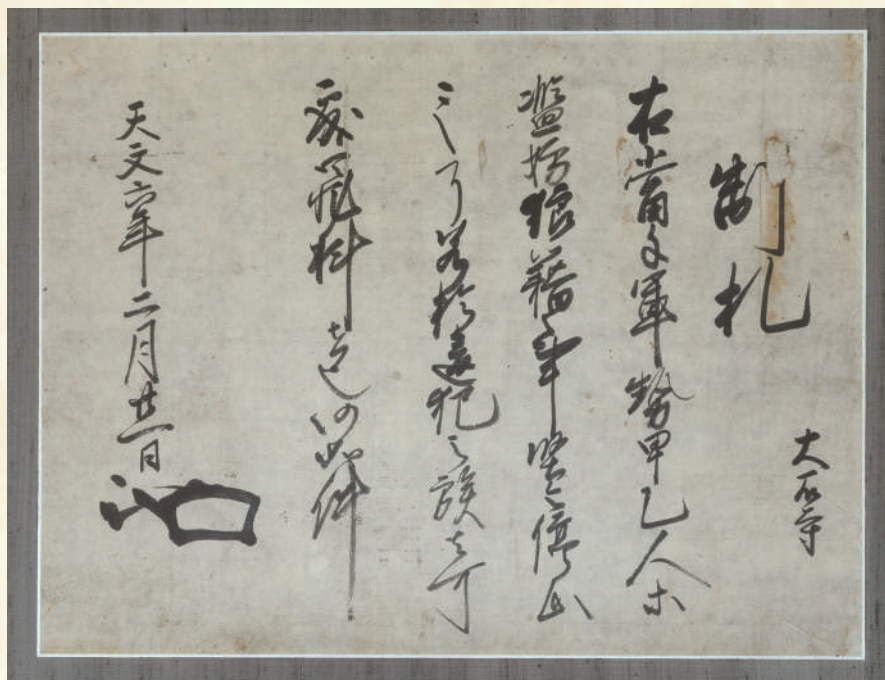 制札
大石寺
右當手軍勢甲乙人等
濫妨狼藉事堅令停止
之了若於違犯之族者可
處罪科者也仍如件
天文六年二月廿一日